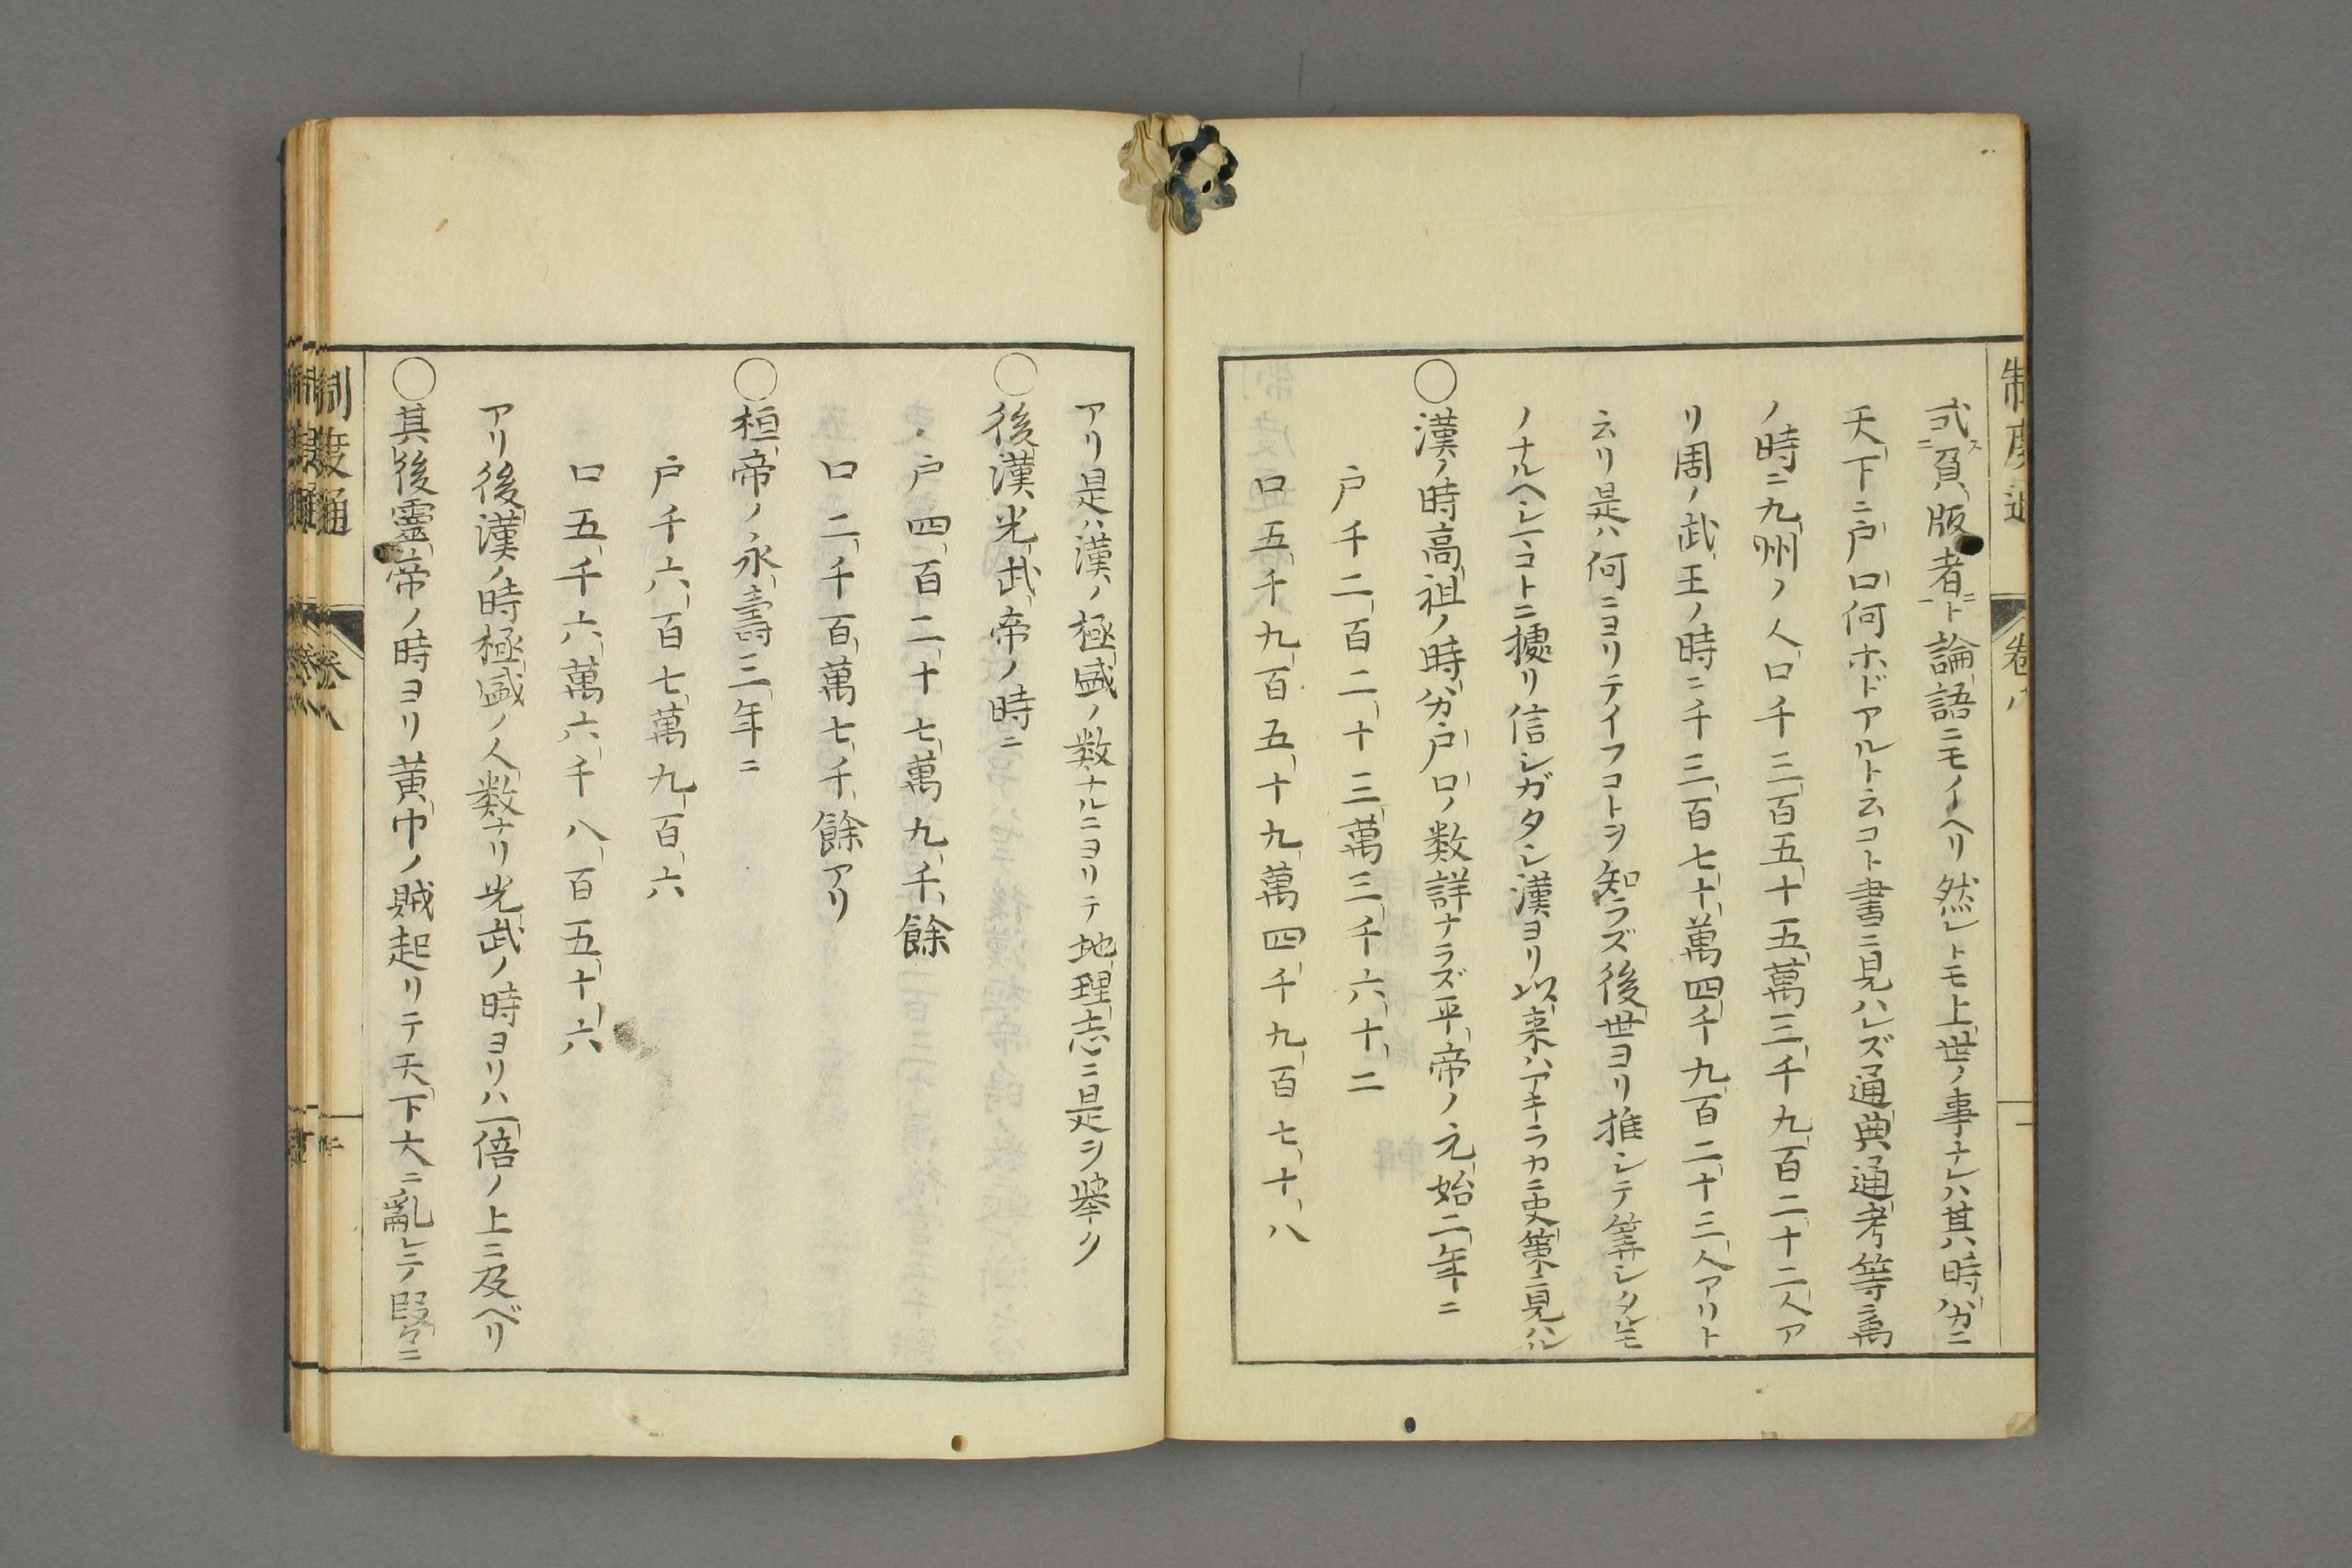 制度通 卷八
式スニ負版者ニ一ト論語ニモイヘリ然レトモ上世ノ事ナレハ其ノ時分ニ
天下ニ戸口何ホドアルト云コト書ニ見ハレズ通典通考等ニ禹
ノ時ニ九州ノ人口千三百五十五萬三千九百二十二人ア
リ周ノ武王ノ時ニ千三百七十萬四千九百二十三人アリト
云リ是ハ何ニヨリテイフコトヲ知ラズ後世ヨリ推シテ筭シタルモ
ノナルヘシコトニ據リ信シガタシ漢ヨリ以来ハアキラカニ史策ニ見ハル
〇漢ノ時高祖ノ時分戸口ノ数詳ナラズ平帝ノ元始二年ニ
戸千二百二十三萬三千六十二
口五千九百五十九萬四千九百七十八
アリ是ハ漢ノ極盛ノ数ナルニヨリテ地理志ニ是ヲ挙ク
〇後漢光武帝ノ時ニ
戸四百二十七萬九千餘
口二千百萬七千餘アリ
〇桓帝ノ永壽三年ニ
戸千六百七萬九百六
口五千六萬六千八百五十六
アリ後漢ノ時極盛ノ人数ナリ光武ノ時ヨリハ一倍ノ上ニ及ベリ
〇其後靈帝ノ時ヨリ黄巾ノ賊起リテ天下大ニ亂レテ段々ニ
制度通 卷八